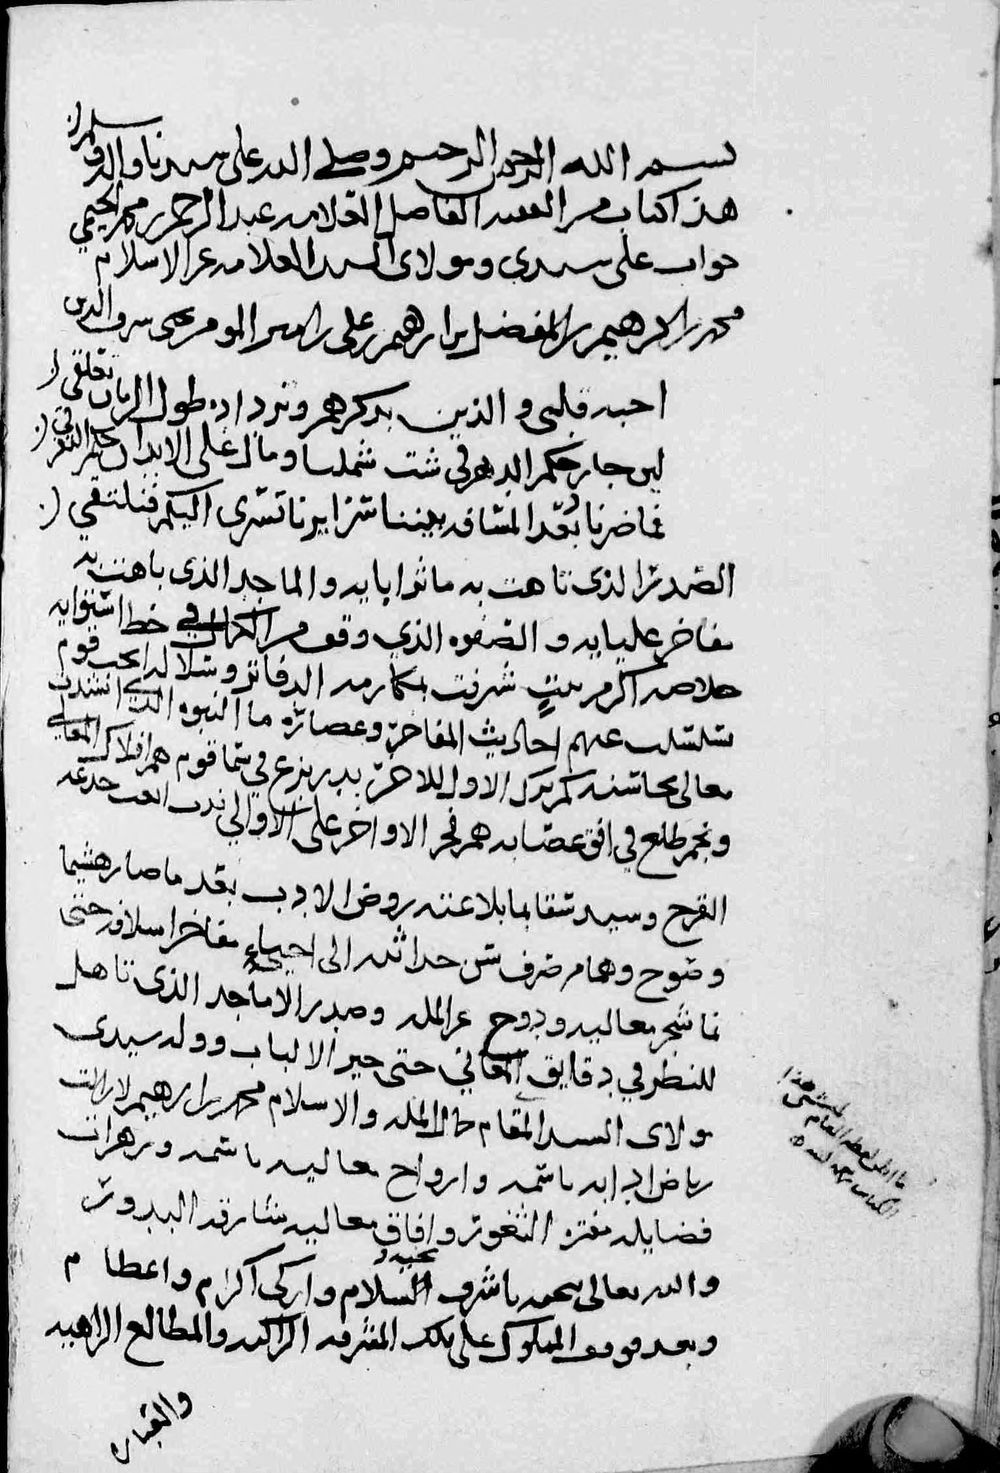 بسم الله الرحمن الرحيم وصلى الله على سيدنا واله وسلم
هذا كتاب من الفقيه الفاضل العلامه عبد الرحمن بن محمد الحيمي
جواب على سيدي ومولاي السيد العلامه عز الاسلام
محمد بن ابرهيم بن المفضل بن ابرهيم بن علي بن امير المومنين يحيى شرف الدين
احبه قلبي والذين بذكرهم وترداده طول الزمان تعلقي
لين جار حكم الدهر في شت شملنا ومال على الابدان حكم التفرق
فما ضرنا بعد المسافه بيننا سرايرنا تسري اليكم فنلتقي
الصدر الذي تاهت به ماثر ابايه والماجد الذي باهت به
مفاخر عليايه والصفوه الذي وقف من الكمال في خط استوايه
خلاصه اكرم بيت شرفت بمكارمه الدفاتر وسلاله انجب قوم
تسلسلت عنهم احاديث المفاخر وعصاره ما النبوه الذي انشدت
معالي محاسنه كم ترك الاول للاخر بدر بزغ في سما قوم هم افلاك المعالي
ونجم طلع في افق عصابه هم فخر الاواخر على الاوالي
القرح وسيد سقا بما بلاغته روض الادب بعد ما صار هشيما
وصوح وهمام صرف سن حداثته الى احياء مفاخر اسلافه حتى
نما شجر معاليه ودوح عز المله وصدر الاماجد الذي تاهل
للنظر في دقايق المعاني حتى حير الالباب وولد سيدي
مولاي السيد المقام جمال المله والاسلام محمد بن ابرهيم لا زالت
رياض ادابه باسمه وارواح معاليه ناسمه وزهرات
فضايله مفتره الثغور وافاق معاليه شارقه البدور
والله تعالى يخصه باشرف تحيه والسلام وازكى اكرام واعظام
وبعد فوفد المملوك على تلك المشرفه الكريمه والمطالع الزاهيه
والعبار